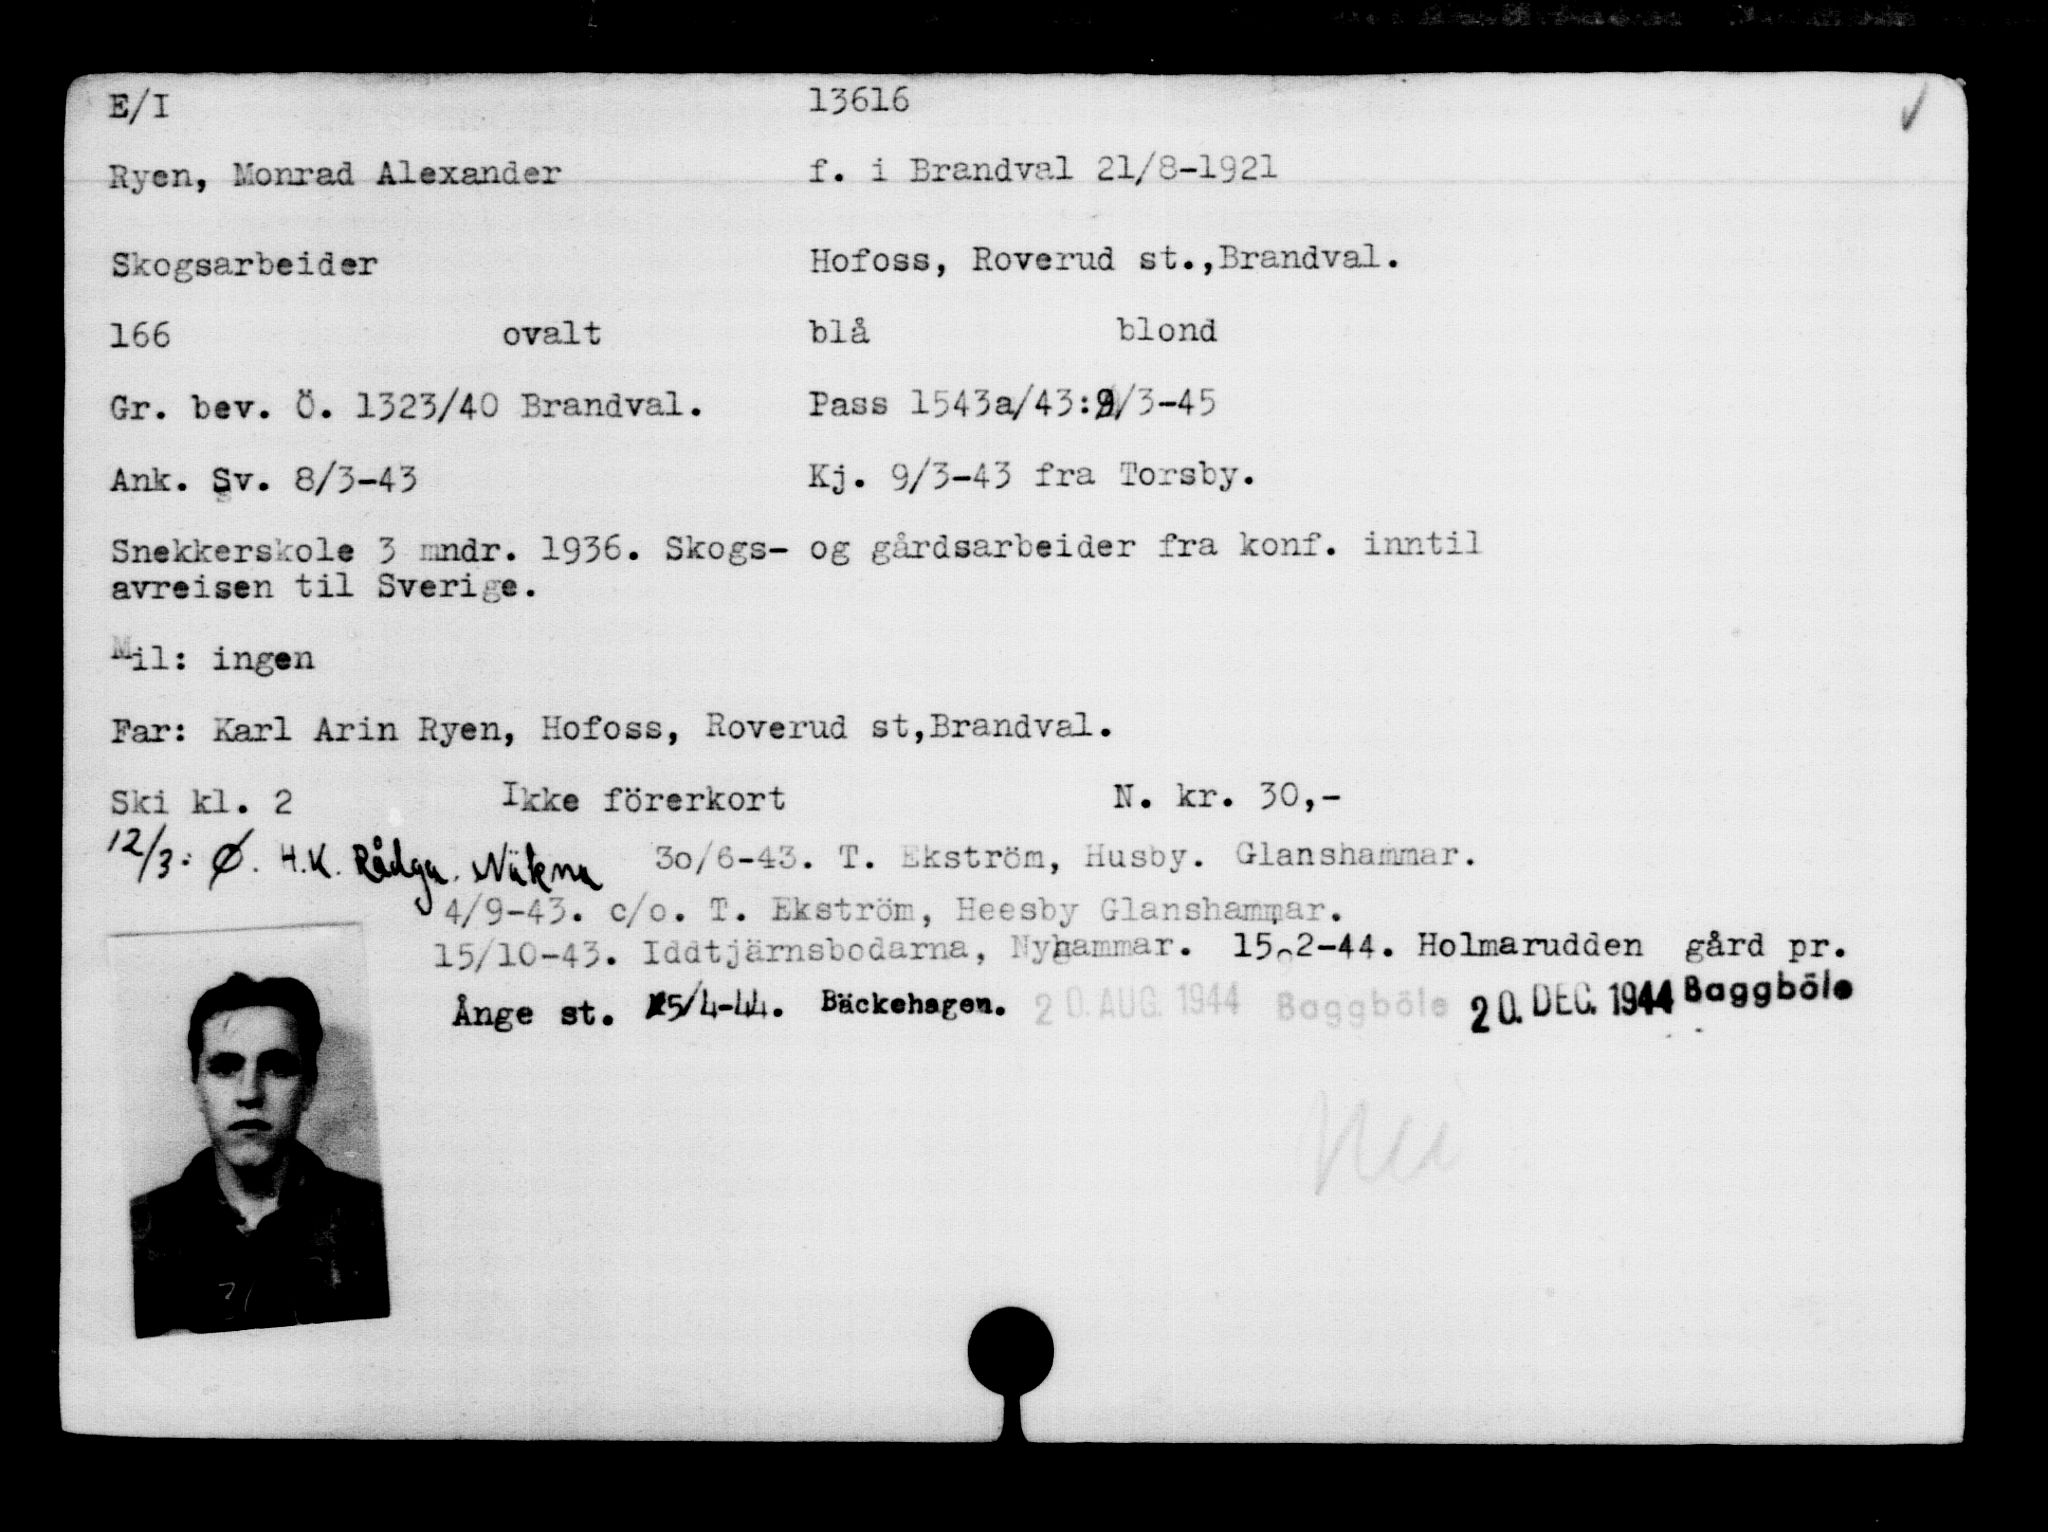 E/I 13616
Ryen, Monrad Alexander f. i Brandval 21/8-1921
Skogsarbeider Hofoss, Roverud st.,Brandval.
166 ovalt blå blond
Gr. bev. Ö. 1323/40 Brandval. Pass 1543a/43:9/3-45
Ank. Sv. 8/3-43 Kj. 9/3-43 fra Torsby.
Snekkerskole 3 mndr. 1936. Skogs- og gårdsarbeider fra konf. inntil
avreisen til Sverige.
Mil: ingen
Far: Karl Arin Ryen, Hofoss, Roverud st,Brandval.
Ski kl. 2 Ikke förerkort N. kr. 30,-
12/3: Ø. H.K. Rådga. Näkna 30/6-43. T. Ekström, Husby. Glanshammar.
4/9-43. c/o. T. Ekström, Heesby Glanshammar.
15/10-43. Iddtjärnsbodarna, Nyhammar. 15.2-44. Holmarudden gård pr.
Ånge st. 15/4-44. Bäckehagen. 20. AUG. 1944 Baggböle 20. DEC. 1944 Baggböle